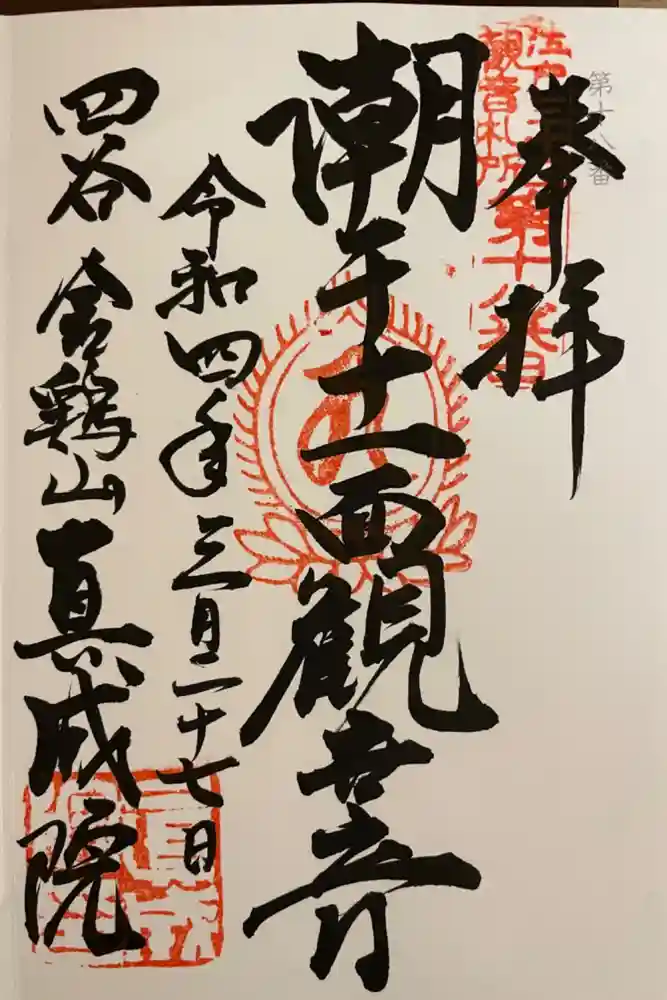 第十八番
奉拝
江戸三十三
観音札所
第十八番
潮干十一面観世音
令和四年三月二十七日
四谷 金鶏山 真成院